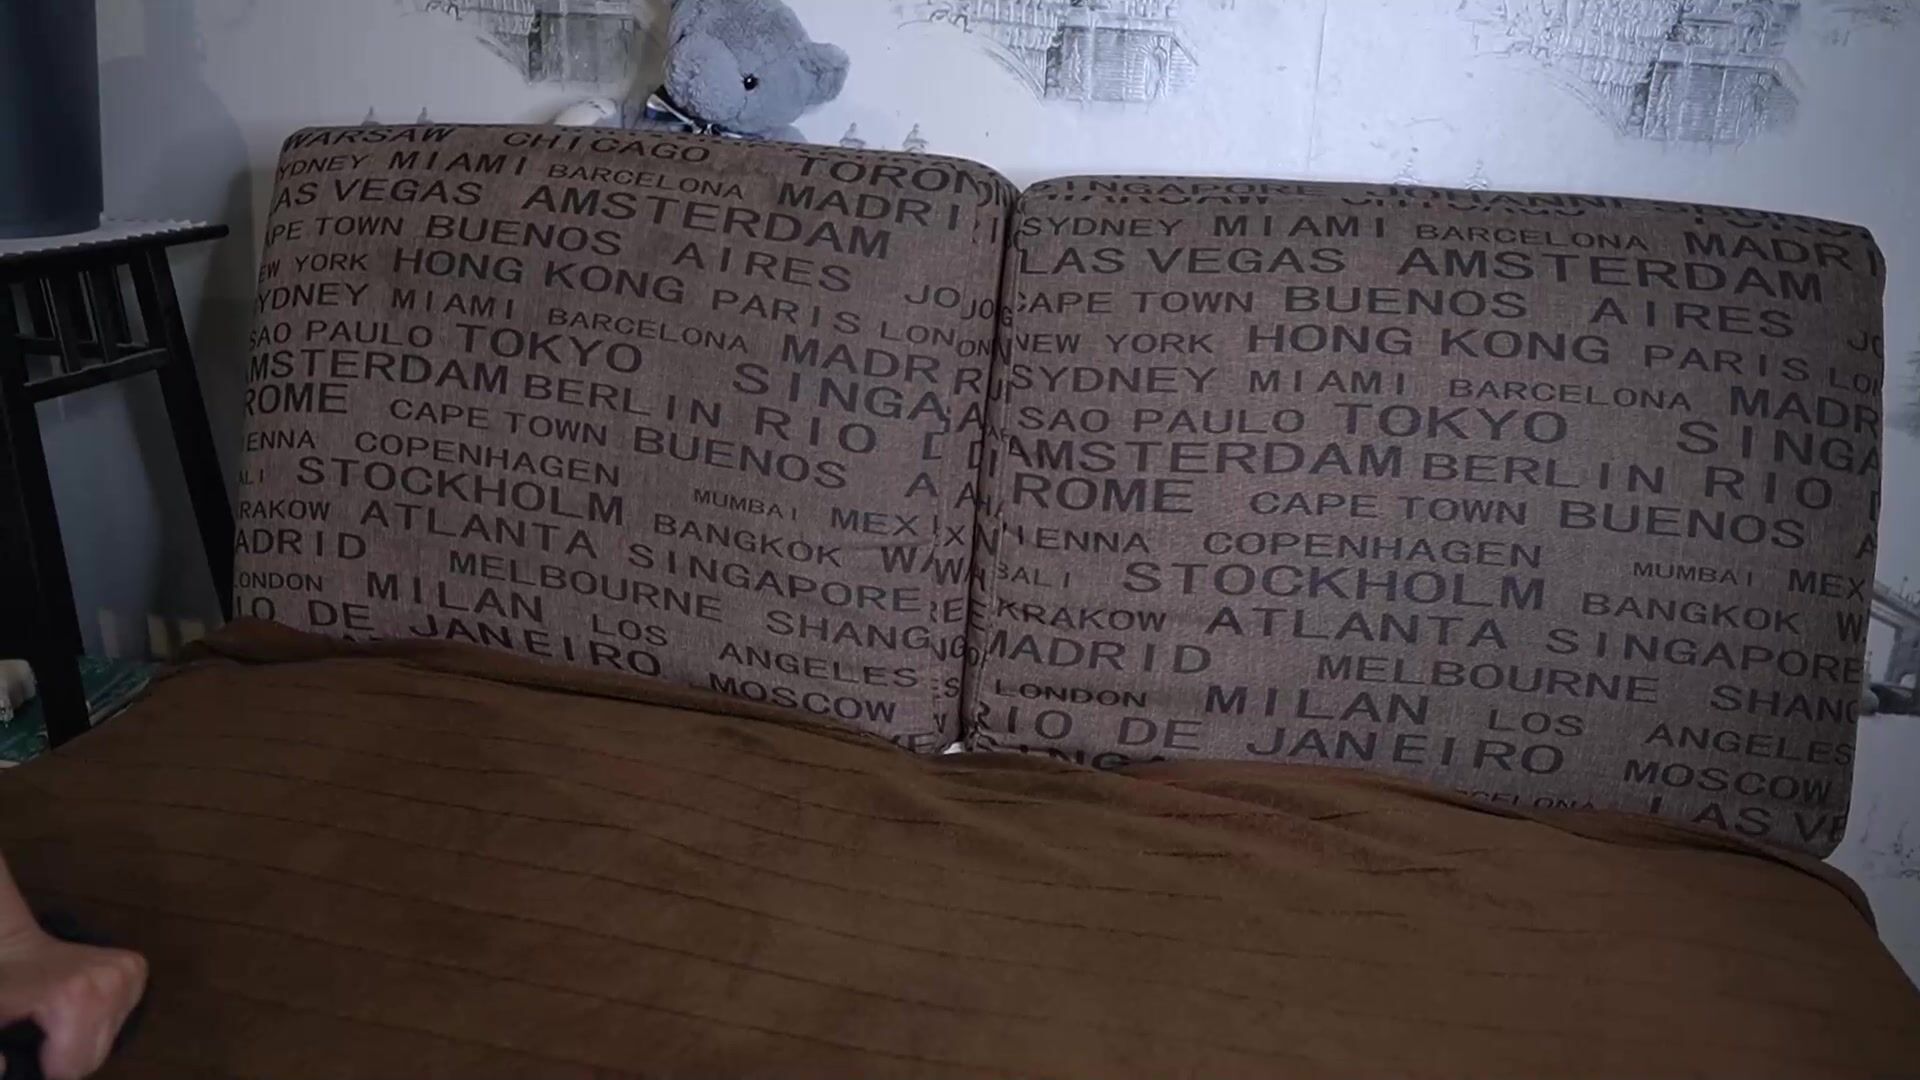 WARSAW CHICAGO TORON
YDNEY MIAMI BARCELONA MADRI
LAS VEGAS AMSTERDAM
APE TOWN BUENOS AIRES JO
EW YORK HONG KONG PARIS LON
YDNEY MIAMI BARCELONA MADR
SAO PAULO TOKYO SINGA
AMSTERDAM BERLIN RIO D
ROME CAPE TOWN BUENOS A
IENNA COPENHAGEN MUMBAI MEX
ALI STOCKHOLM BANGKOK WA
KRAKOW ATLANTA SINGAPORE
ADRID MELBOURNE SHANG
LONDON MILAN LOS ANGELES
IO DE JANEIRO MOSCOW
SINGAPORE JOHANNE
SYDNEY MIAMI BARCELONA MADRI
LAS VEGAS AMSTERDAM
CAPE TOWN BUENOS AIRES JO
NEW YORK HONG KONG PARIS LON
SYDNEY MIAMI BARCELONA MADR
SAO PAULO TOKYO SINGA
AMSTERDAM BERLIN RIO D
ROME CAPE TOWN BUENOS A
IENNA COPENHAGEN MUMBAI MEX
BALI STOCKHOLM BANGKOK W
KRAKOW ATLANTA SINGAPORE
MADRID MELBOURNE SHANG
LONDON MILAN LOS ANGELES
RIO DE JANEIRO MOSCOW
LAS VE